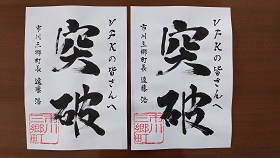 VFKの皆さんへ
突破
市川三郷町長 遠藤 浩
市川三郷町
VFKの皆さんへ
突破
市川三郷町長 遠藤 浩
市川三郷町